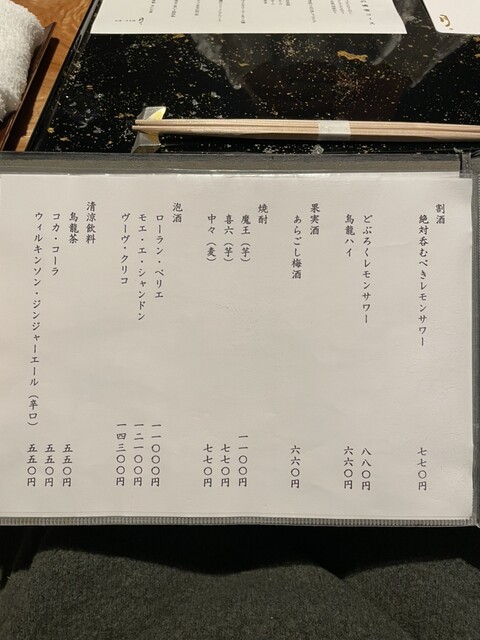 割酒
絶対呑むべきレモンサワー 七七〇円
どぶろくレモンサワー 八八〇円
烏龍ハイ 六六〇円
果実酒
あらごし梅酒 六六〇円
焼酎
魔王(芋) 一一〇〇円
喜六(芋) 七七〇円
中々(麦) 七七〇円
泡酒
ローラン・ペリエ 一一〇〇〇円
モエ・エ・シャンドン 一二一〇〇円
ヴーヴ・クリコ 一四三〇〇円
清涼飲料
烏龍茶 五五〇円
コカ・コーラ 五五〇円
ウィルキンソン・ジンジャーエール(辛口) 五五〇円